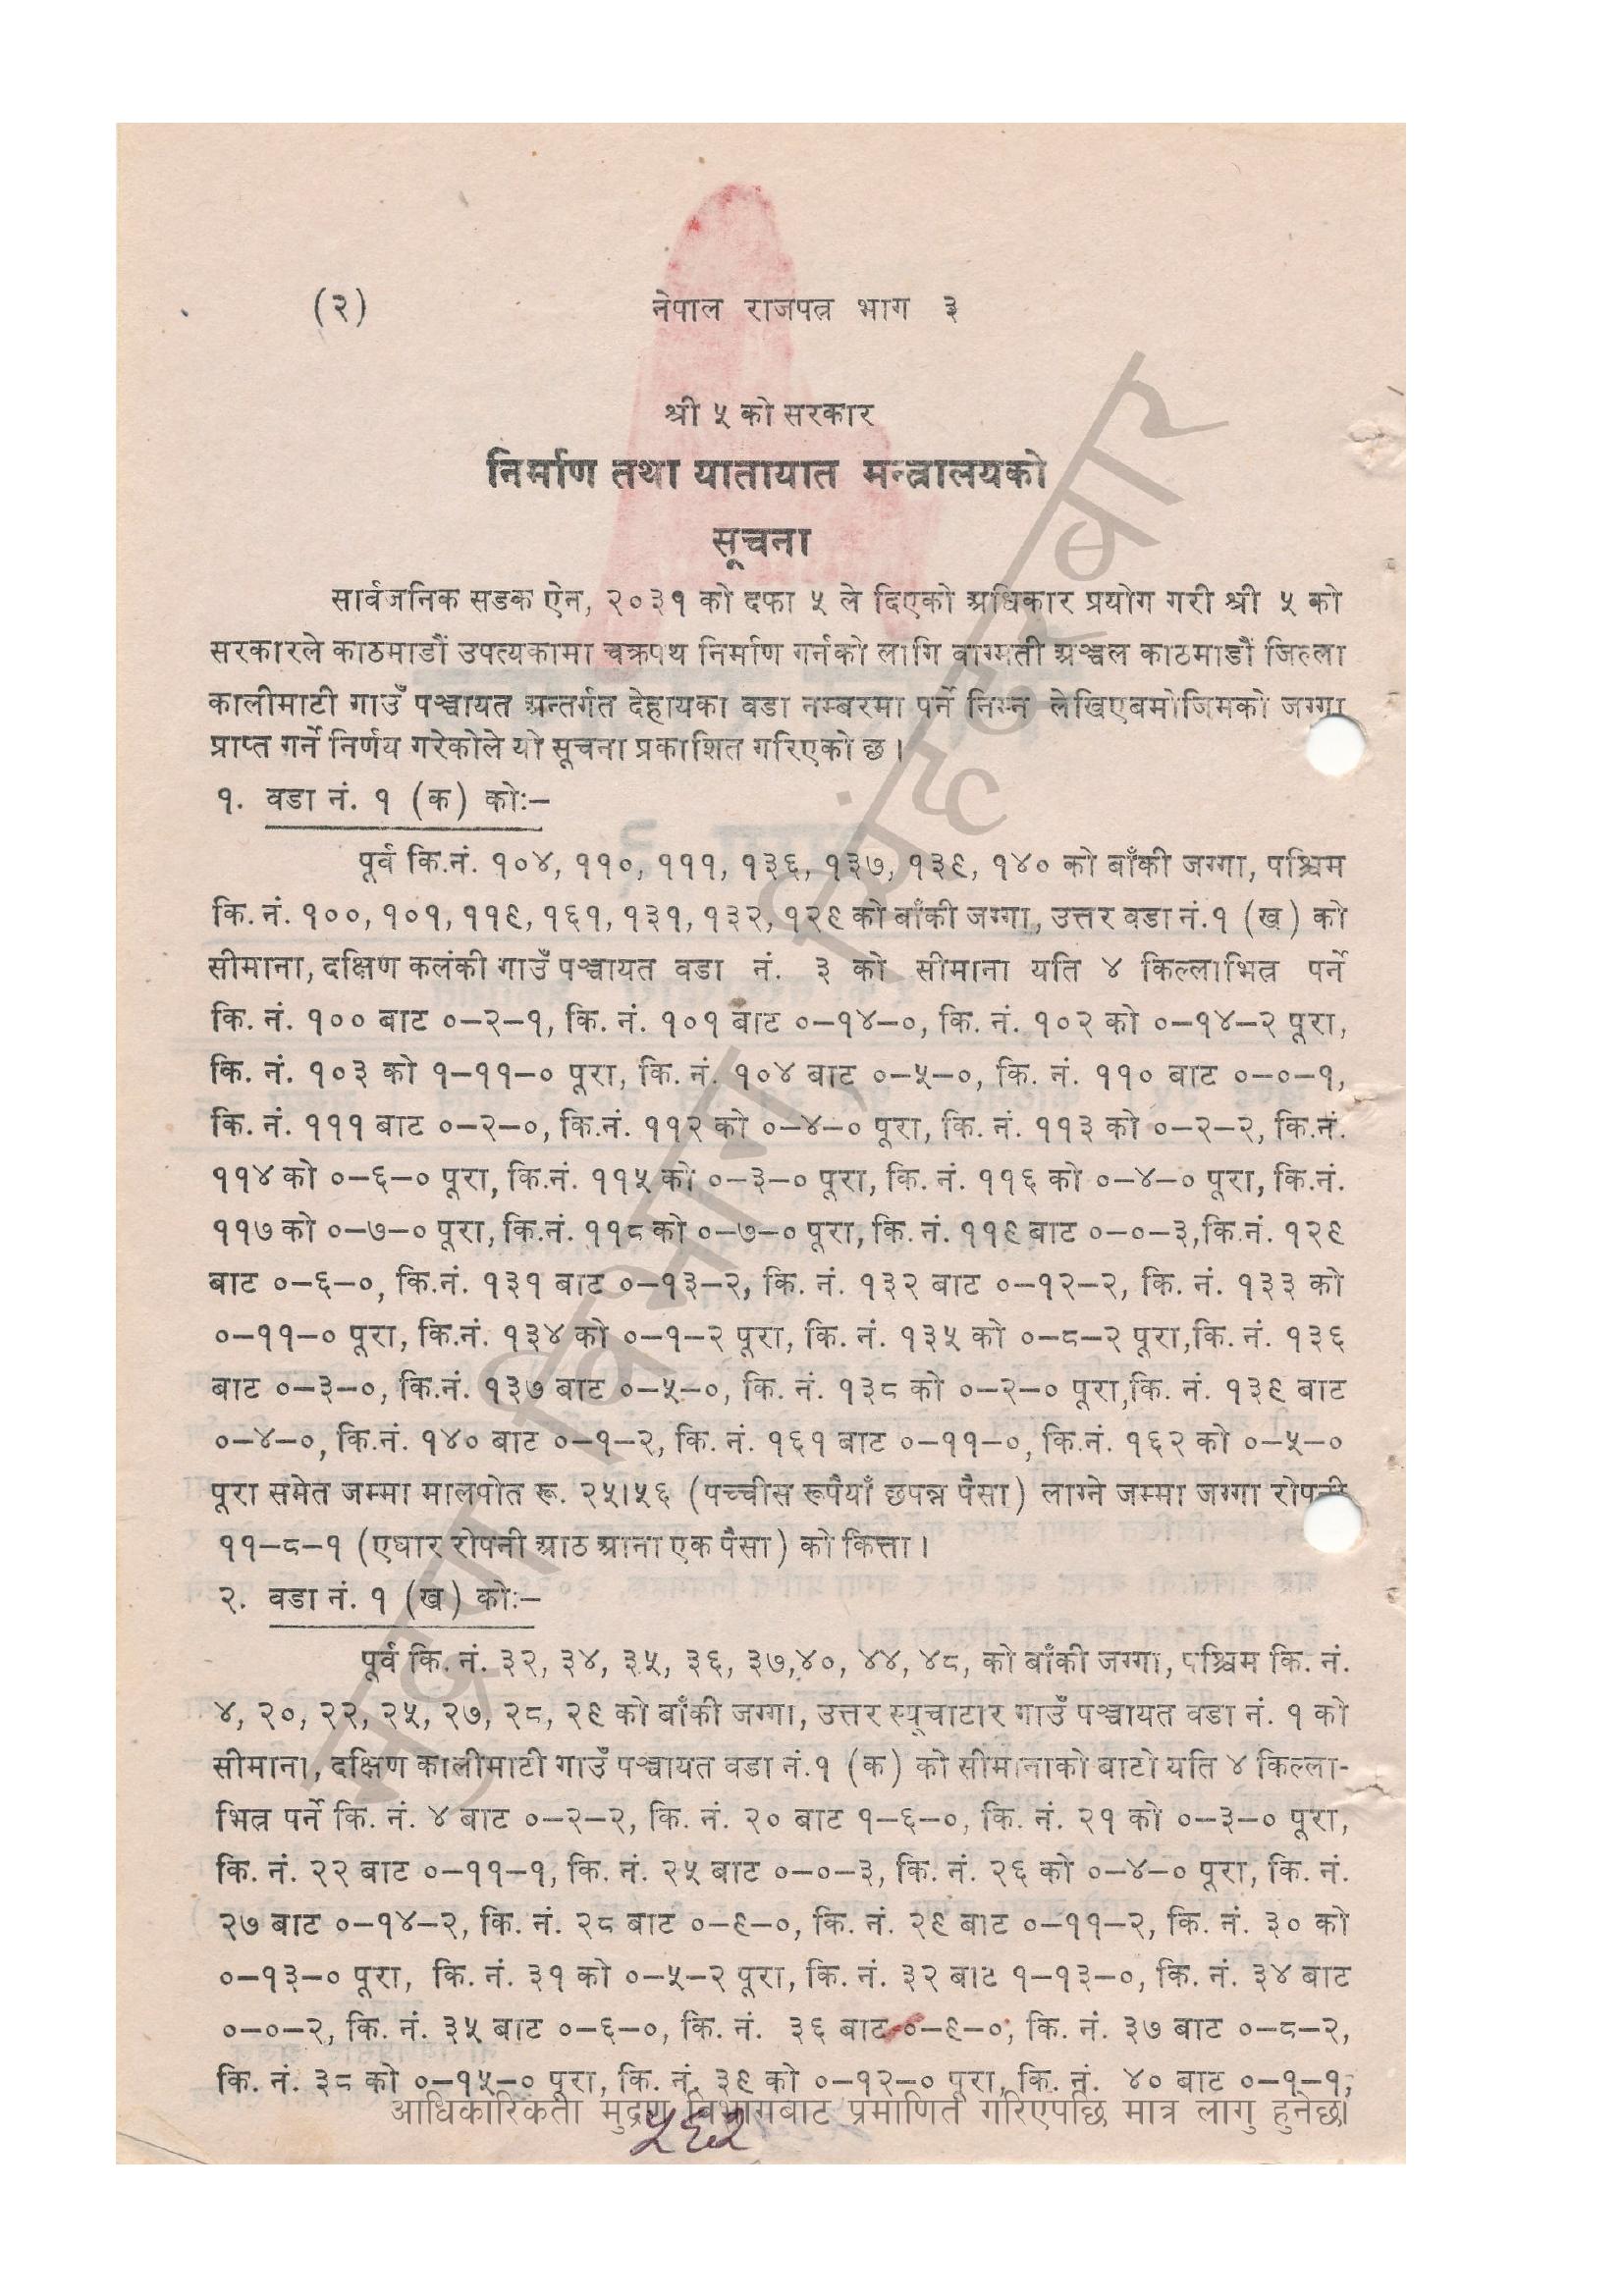 (२) नेपाल राजपत्र भाग ३
श्री ५ को सरकार
निर्माण तथा यातायात मन्त्रालयको
सूचना
सार्वजनिक सडक ऐन, २०३१ को दफा ५ ले दिएको अधिकार प्रयोग गरी श्री ५ को
सरकारले काठमाडौं उपत्यकामा चक्रपथ निर्माण गर्नको लागि वाग्मती अञ्चल काठमाडौं जिल्ला
कालीमाटी गाउँ पञ्चायत अन्तर्गत देहायका वडा नम्बरमा पर्ने निम्न लेखिएबमोजिमको जग्गा
प्राप्त गर्ने निर्णय गरेकोले यो सूचना प्रकाशित गरिएको छ।
१. वडा नं. १ (क) कोः–
पूर्व कि.नं. १०४, ११०, १११, १३६, १३७, १३९, १४० को बाँकी जग्गा, पश्चिम
कि. नं. १००, १०१, ११९, १६१, १३१, १३२, १२९ को बाँकी जग्गा, उत्तर वडा नं.१ (ख) को
सीमाना, दक्षिण कलंकी गाउँ पञ्चायत वडा नं. ३ को सीमाना यति ४ किल्लाभित्र पर्ने
कि. नं. १०० बाट ०–२–१, कि. नं. १०१ बाट ०–१४–०, कि. नं. १०२ को ०–१४–२ पूरा,
कि. नं. १०३ को १–११–० पूरा, कि. नं. १०४ बाट ०–५–०, कि. नं. ११० बाट ०–०–१,
कि. नं. १११ बाट ०–२–०, कि.नं. ११२ को ०–४–० पूरा, कि. नं. ११३ को ०–२–२, कि.नं.
११४ को ०–६–० पूरा, कि.नं. ११५ को ०–३–० पूरा, कि. नं. ११६ को ०–४–० पूरा, कि.नं.
११७ को ०–७–० पूरा, कि.नं. ११८ को ०–७–० पूरा, कि. नं. ११९ बाट ०–०–३,कि.नं. १२९
बाट ०–६–०, कि.नं. १३१ बाट ०–१३–२, कि. नं. १३२ बाट ०–१२–२, कि. नं. १३३ को
०–११–० पूरा, कि.नं. १३४ को ०–१–२ पूरा, कि. नं. १३५ को ०–८–२ पूरा,कि. नं. १३६
बाट ०–३–०, कि.नं. १३७ बाट ०–५–०, कि. नं. १३८ को ०–२–० पूरा,कि. नं. १३९ बाट
०–४–०, कि.नं. १४० बाट ०–१–२, कि. नं. १६१ बाट ०–११–०, कि.नं. १६२ को ०–५–०
पूरा समेत जम्मा मालपोत रू. २५।५६ (पच्चीस रूपैयाँ छपन्न पैसा) लाग्ने जम्मा जग्गा रोपनी
११–८–१ (एघार रोपनी आठ आना एक पैसा) को कित्ता।
२. वडा नं. १ (ख) कोः–
पूर्व कि. नं. ३२, ३४, ३५, ३६, ३७,४०, ४४, ४८, को बाँकी जग्गा, पश्चिम कि. नं.
४, २०, २२, २५, २७, २८, २९ को बाँकी जग्गा, उत्तर स्यूचाटार गाउँ पञ्चायत वडा नं. १ को
सीमाना, दक्षिण कालीमाटी गाउँ पञ्चायत वडा नं.१ (क) को सीमानाको बाटो यति ४ किल्ला-
भित्र पर्ने कि. नं. ४ बाट ०–२–२, कि. नं. २० बाट १–६–०, कि. नं. २१ को ०–३–० पूरा,
कि. नं. २२ बाट ०–११–१, कि. नं. २५ बाट ०–०–३, कि. नं. २६ को ०–४–० पूरा, कि. नं.
२७ बाट ०–१४–२, कि. नं. २८ बाट ०–९–०, कि. नं. २९ बाट ०–११–२, कि. नं. ३० को
०–१३–० पूरा, कि. नं. ३१ को ०–५–२ पूरा, कि. नं. ३२ बाट १–१३–०, कि. नं. ३४ बाट
०–०–२, कि. नं. ३५ बाट ०–६–०, कि. नं. ३६ बाट ०–९–०, कि. नं. ३७ बाट ०–८–२,
कि. नं. ३८ को ०–१५–० पूरा, कि. नं. ३९ को ०–१२–० पूरा, कि. नं. ४० बाट ०–१–१,
आधिकारिकता मुद्रण विभागबाट प्रमाणित गरिएपछि मात्र लागु हुनेछ।
५६२
मुद्रण विभाग, सिंहदरबार